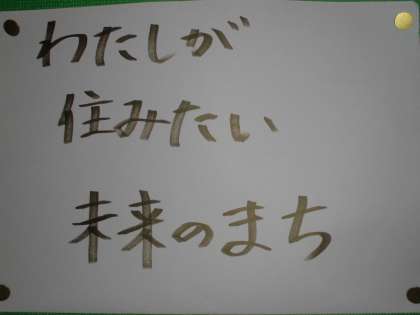 わたしが
住みたい
未来のまち